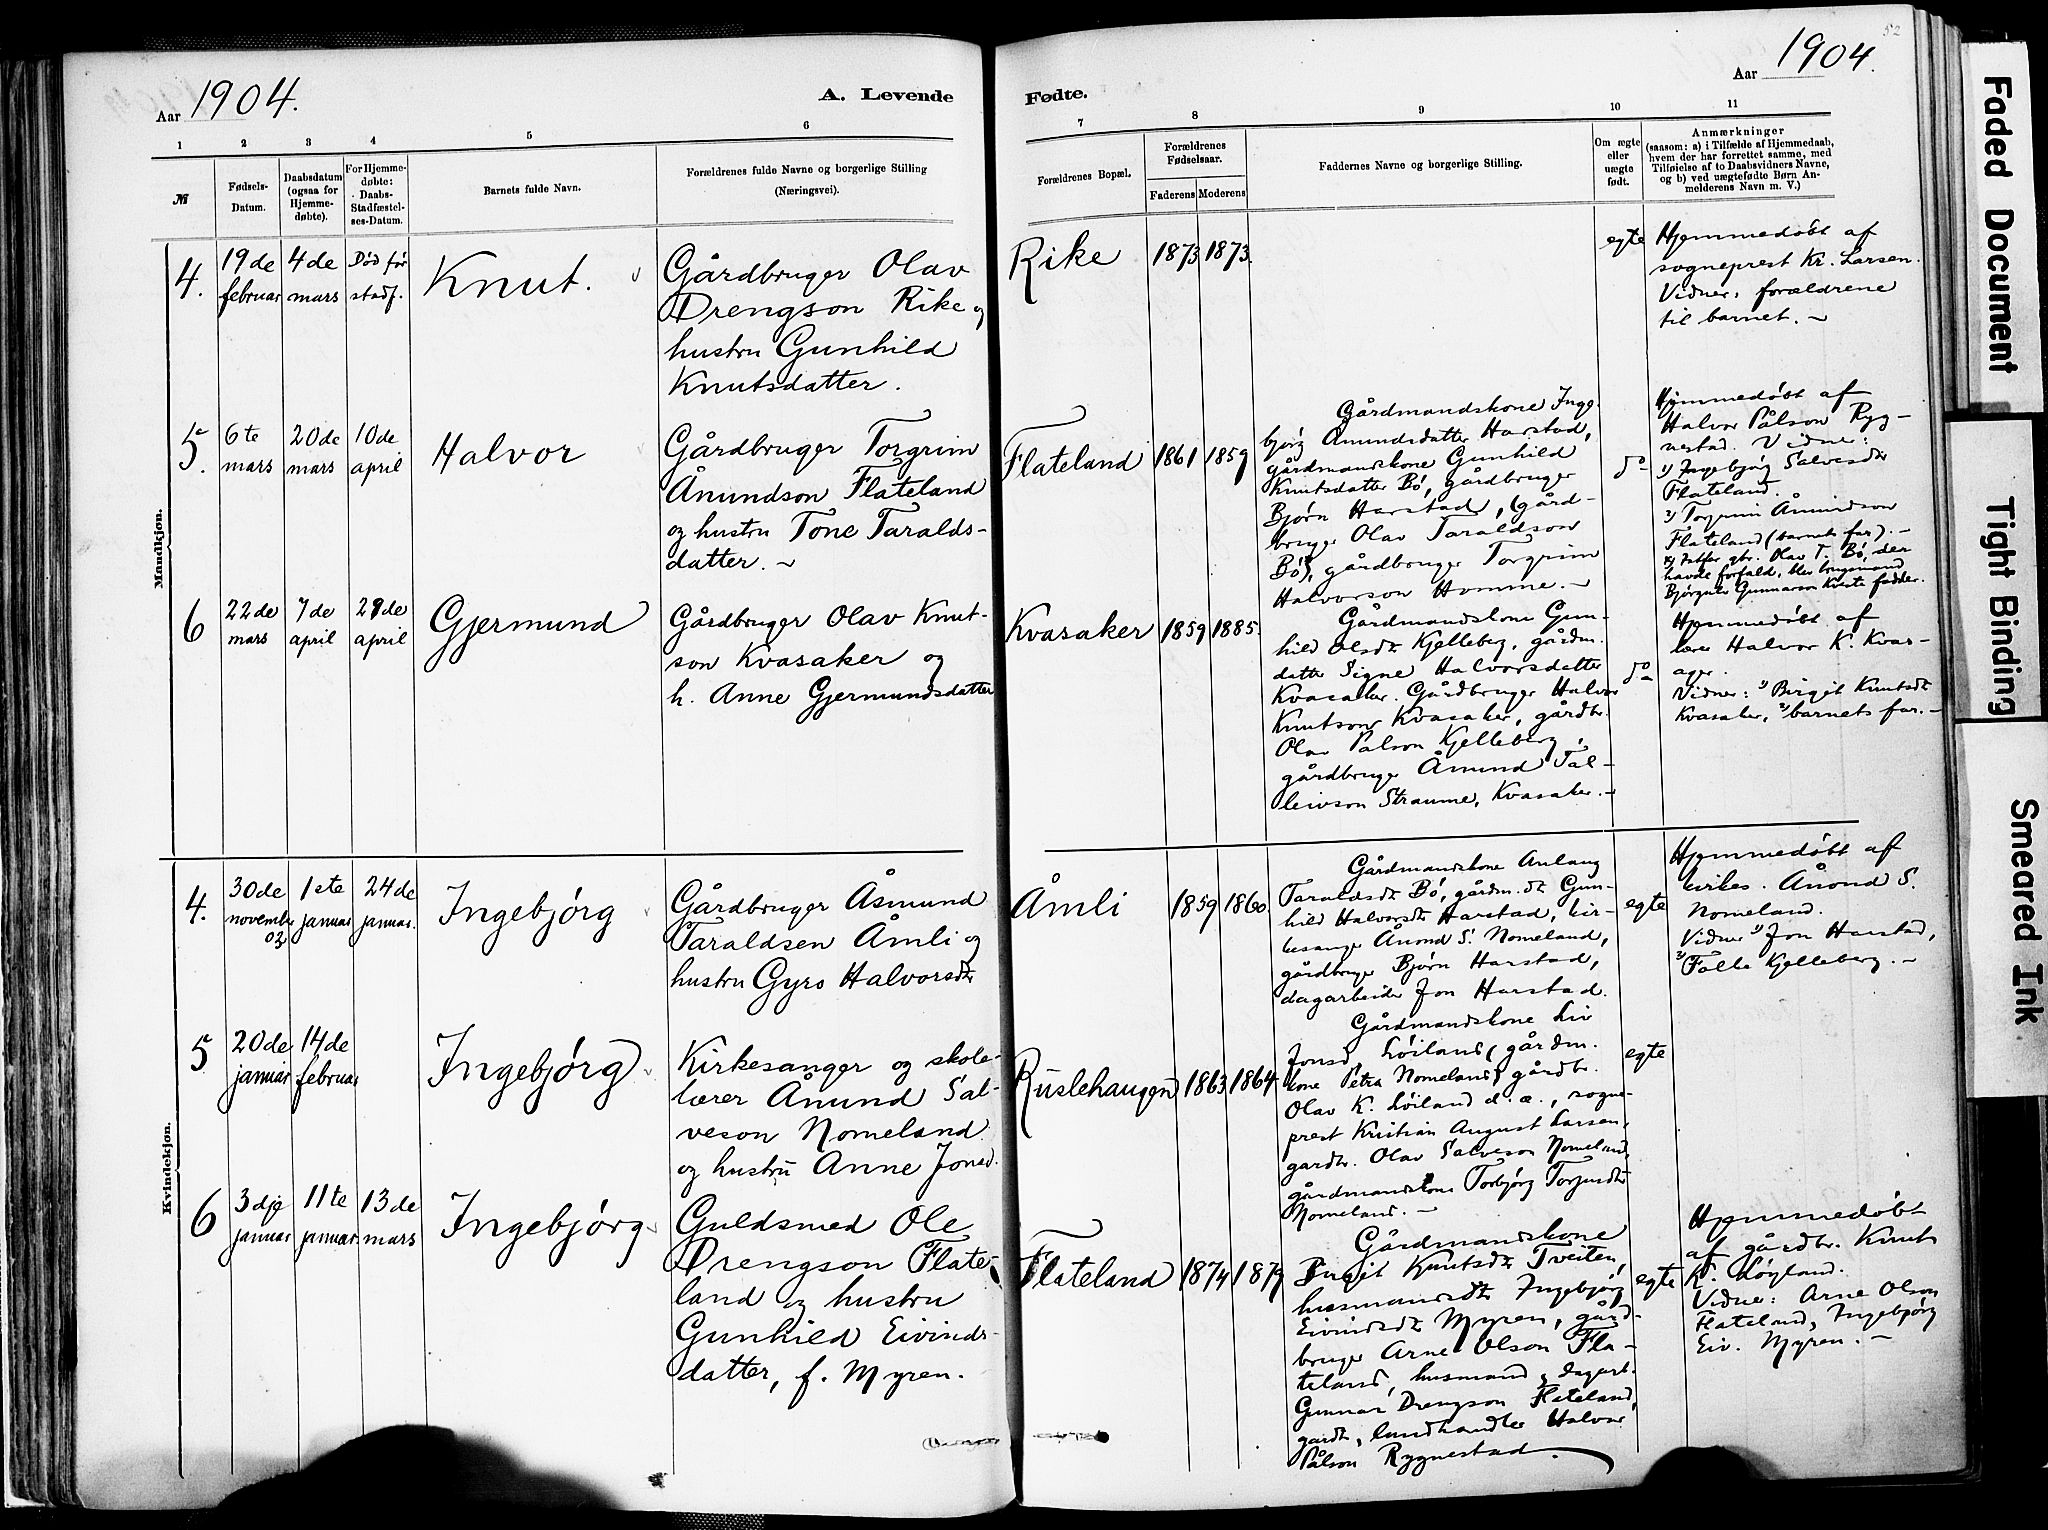 52
Aar 1904.
A. Levende
Fødte.
Aar 1904.
1 2 3 4 5 6 7 8 9 10 11
№
Fødsels-
Datum.
Daabsdatum
(ogsaa for
Hjemme-
døbte).
For Hjemme-
døbte:
Daabs-
Stadfæstel-
ses-Datum.
Barnets fulde Navn.
Forældrenes fulde Navne og borgerlige Stilling
(Næringsvei).
Forældrenes Bopæl.
Forældrenes
Fødselsaar.
Faderens Moderens
Faddernes Navne og borgerlige Stilling.
Om ægte
eller
uægte
født.
Anmærkninger
(saasom: a) i Tilfælde af Hjemmedaab,
hvem der har forrettet samme, med
Tilføielse af to Daabsvidners Navne,
og b) ved uægtefødte Børn An-
melderens Navn m. V.)
Mandkjøn.
4.
19de
februar
4de
mars
Død før
stadf.
Knut.
Gårdbruger Olav
Drengson Rike og
hustru Gunhild
Knutsdatter.
Rike
1873
1873.
egte
Hjemmedøbt af
sogneprest Kr. Larsen.
Vidner: forældrene
til barnet. ~
5.
6te
mars
20de
mars
10de
april
Halvor
Gårdbruger Torgrim
Ånundson Flateland
og hustru Tone Taralds-
datter. ~
Flateland
1861
1859
Gårdmandskone Inge-
bjørg Amundsdatter Harstad,
gårdmandskone Gunhild
Knutsdatter Bø, gårdbruger
Bjørn Harstad, (gård-
bruger Olav Taraldson
Bø), gårdbruger Torgrim
Halvorson Homme. ~
do
Hjemmedøbt af
Halvor Pålson Ryg-
nestad. Vidne:
1) Ingebjørg Salvesdtr
Flateland.
2) Torgrim Ånundson
Flateland (barnets far). -
x) Istfor gbr. Olav T. Bø, der
havde forfald, blev brugsmand
Gunnarson Kveste fadder.
6
22de
mars
7de
april
29de
april
Gjermund
Gårdbruger Olav Knut-
son Kvasaker og
h. Anne Gjermundsdatter
Kvasaker
1859
1885.
Gårdmandskone Gun-
hild Olsdtr Kjelleberg, gårdm.
datter Signe Halvorsdatter
Kvasaker. Gårdbruger Halvor
Knutson Kvasaker, gårdbr.
Olav Pålson Kjelleberg,
gårdbruger Åmund Tal-
leivson Straume, Kvasaker. -
do
Hjemmedøbt af
lærer Halvor K. Kvas-
ager.
Vidner: 1) Birgit Knutsdt
Kvasaker, 2) barnets far. -
Kvindekjøn.
4.
30de
novembr
03
1ste
januar
24de
januar.
Ingebjørg
Gårdbruger Åsmund
Taraldsen Åmli og
hustru Gyro Halvorsdtr
Åmli
1859
1860.
Gårdmandskone Anlaug
Taraldsdt Bø, gårdm.dt Gun-
hild Halvorsdt Harstad, kir-
kesanger Ånond S. Nomeland,
gårdbruger Bjørn Harstad,
dagarbeider Jon Harstad.
egte
Hjemmedøbt af
kirkes. Ånond S.
Nomeland.
Vidner 1) Jon Harstad,
2) Tålle Kjelleberg. -
5
20de
januar
14de
februar
Ingebjørg
Kirkesanger og skole-
lærer Ånund Sal-
veson Nomeland
og hustru Anne Jonsd.
Ruslehaugen
1863
1864.
Gårdmandskone Liv
Jonsd. Løiland, (gårdm.
kone Petra Nomeland) gårdbr.
Olav K. Løiland d. æ., sogne-
prest Kristian August Larsen,
gardbr. Olav Salveson Nomeland,
gårdmandskone Torbjørg Torjusdtr
Nomeland. -
egte
6
3dje
januar
11te
januar
13de
mars
Ingebjørg
Guldsmed Ole
Drengson Flate-
land og hustru
Gunhild Eivinds-
datter, f. Myren.
Flateland
1874
1879
Gårdmandskone
Birgit Knutsdt Tveiten,
husmandsdtr Ingebjørg
Eivindsdt Myren, gård-
bruger Arne Olson Fla-
teland, husmand & dagarb.
Gunnar Drengson Flateland,
gardbr, landhandler Halvor
Pålson Rygnestad.
egte
Hjemmedøbt
af gårdbr. Knut
K. Løyland.
Vidne: Arne Olson
Flateland, Ingebjørg
Eiv. Myren. -
Faded Document
Tight Binding
Smeared Ink